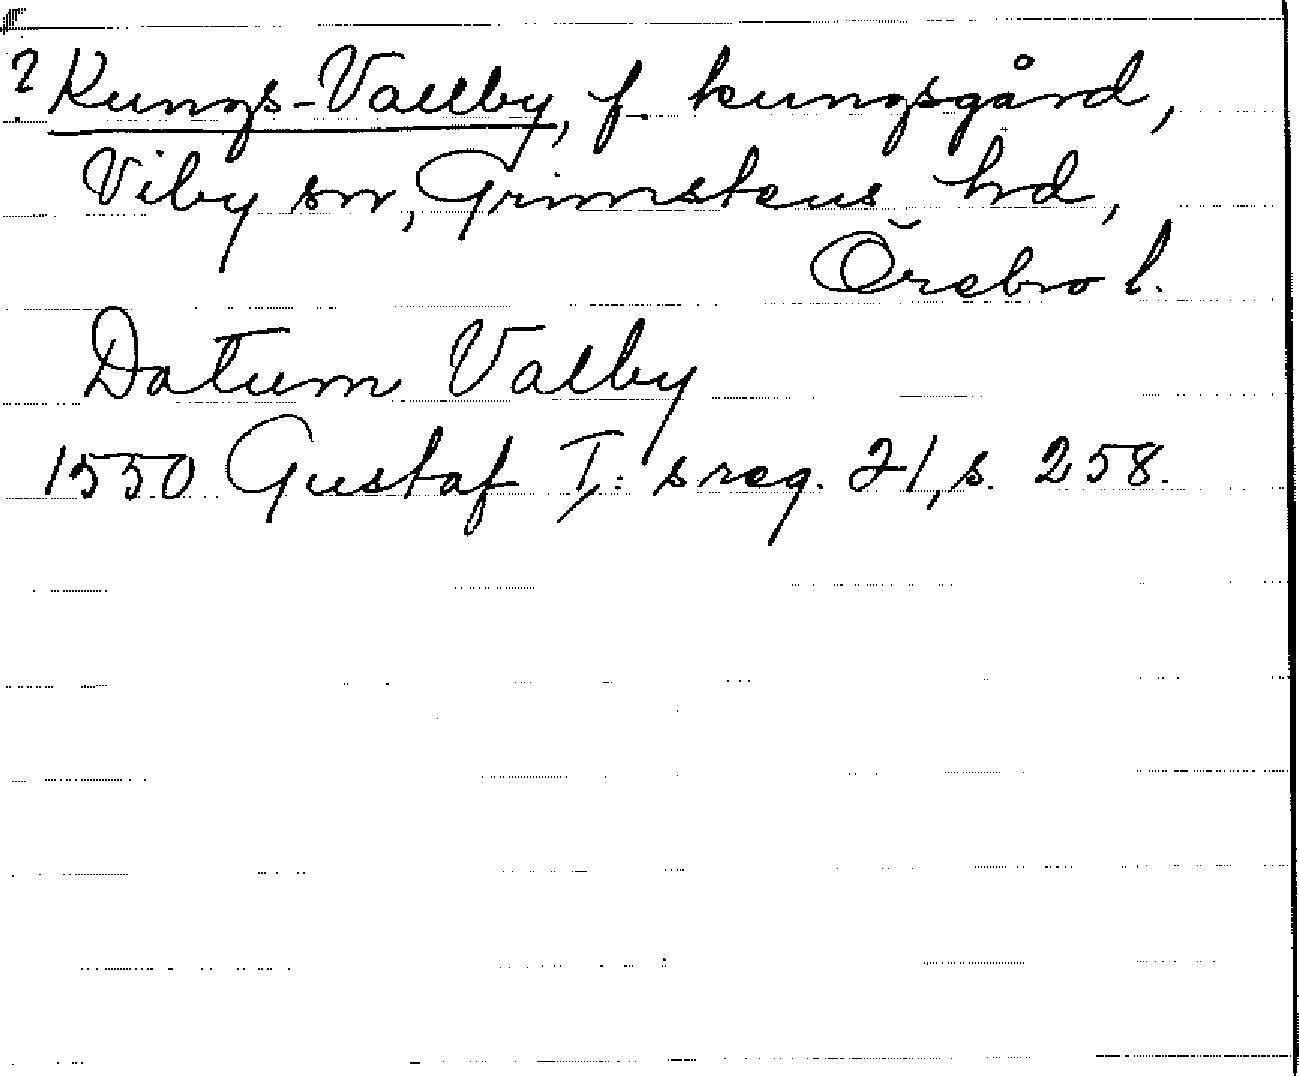 ? Kungs-Vallby, f. kungsgård,
Viby sn, Grimstens hd,
Örebro l.
Datum Valby
1550 Gustaf I:s reg. 21, s. 258.